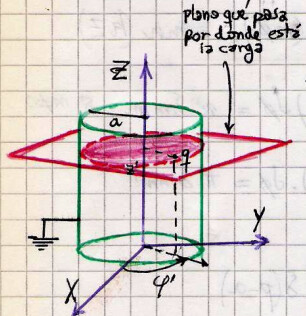 plano que pasa
por donde está
la carga
Z
a
q
z'
Y
X
φ'